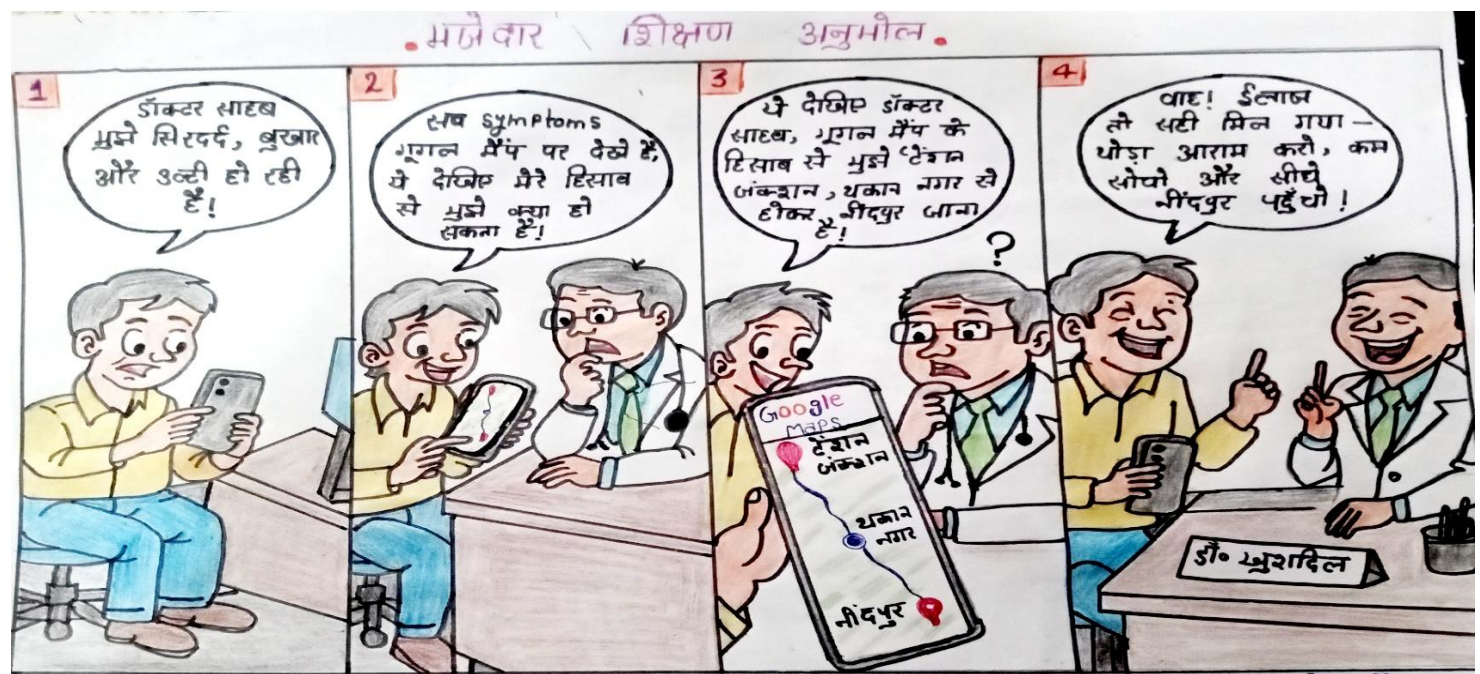 मजेदार शिक्षण अनुमोल
1
डॉक्टर साहब
मुझे सिरदर्द, बुखार
और उल्टी हो रही
है!
2
सब symptoms
गूगल मैप पर देखे हैं,
ये देखिए मेरे हिसाब
से मुझे क्या हो
सकता है!
3
ये देखिए डॉक्टर
साहब, गूगल मैप के
हिसाब से मुझे 'टेंशन
जंक्शन, थकान नगर से
होकर नींदपुर जाना
है!
?
Google
MaPS
टेंशन
जंक्शन
थकान
नगर
नींदपुर
4
वाह! ईलाज
तो सही मिल गया –
थोड़ा आराम करो, कम
सोचो और सीधे
नींदपुर पहुँचो!
डॉ॰ खुशदिल